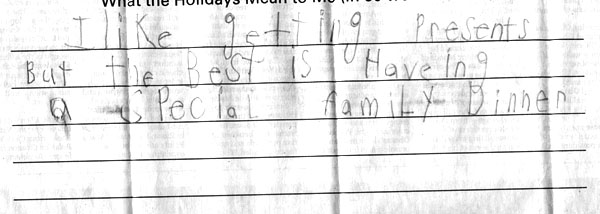 What the Holidays Mean to Me (in
I like getting Presents
But the Best is Haveing
a SPecial family Dinner